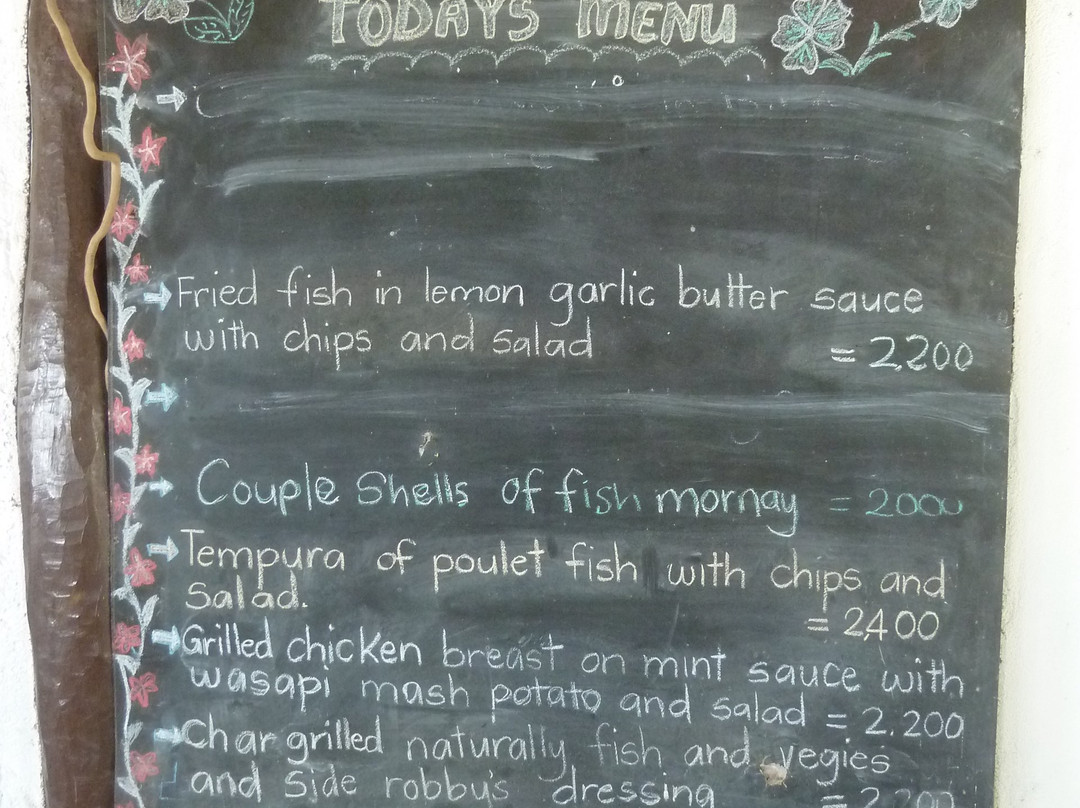 TODAYS MENU
Fried fish in lemon garlic butter sauce
with chips and salad = 2200
Couple Shells of fish mornay = 2000
Tempura of poulet fish with chips and
Salad.
= 2400
Grilled chicken breast on mint sauce with
wasapi mash potato and salad = 2.200
Char grilled naturally fish and vegies
and side robby's dressing = 2.200